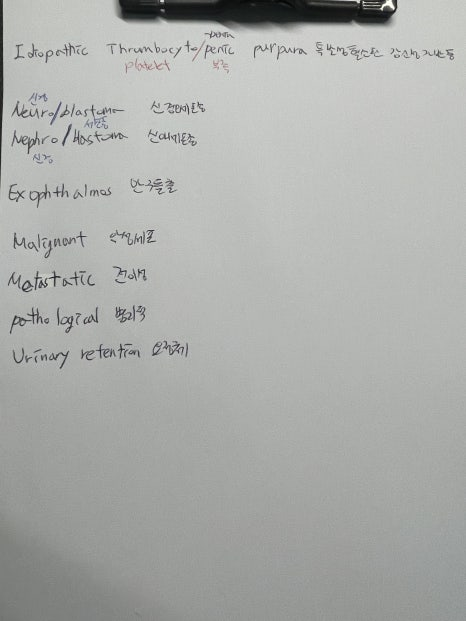 -penia
Idiopathic Thrombocyto/penic purpura 특발성 혈소판 감소성 자반증
platelet 부족
신경
Neuro/blastoma 신경모세포종
Nephro/blastoma
신장
Exophthalmos 안구돌출
Malignant 악성세포
Metastatic 전이성
pathological 병리학
Urinary retention 요정체